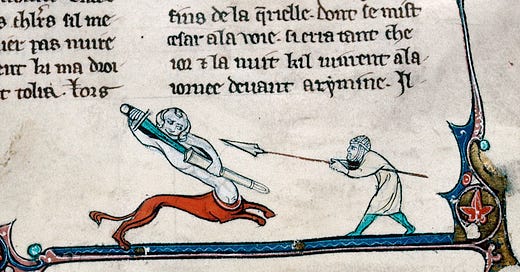 s chlrs sil me
ier pas nuire
ent ki ma droi
t tolia. Lors
fins de la q̄rielle. dont se mist
cesar ala voie. si erra tant che
ior ⁊ la nuit kil vinrent ala
iornee deuant arymine. Il